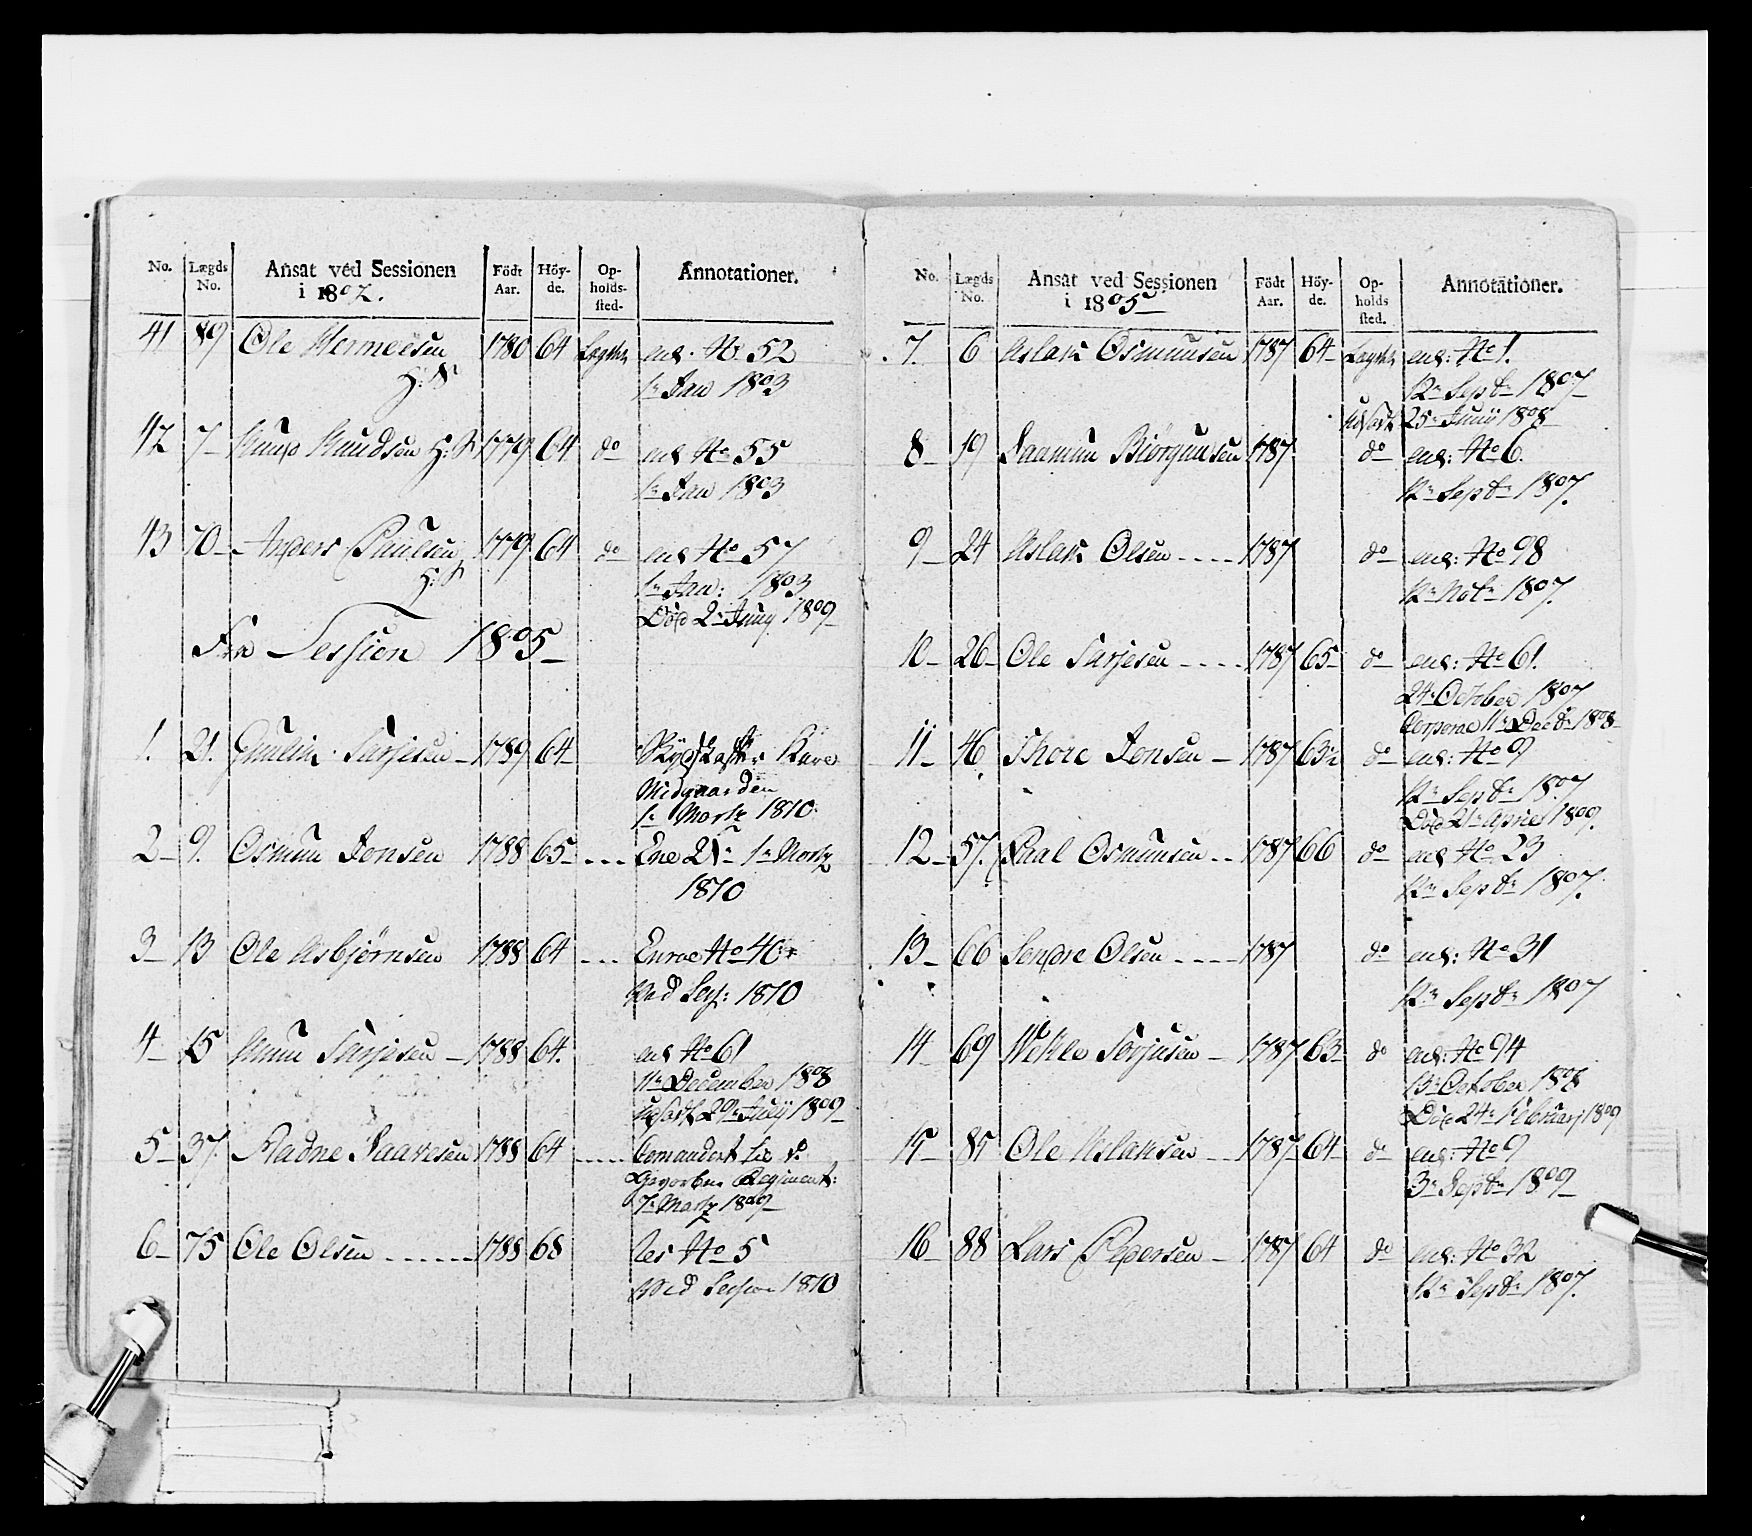 No. Lægds No. Ansat ved Sessionen i 1802. Födt Aar. Höy-de. Op-holds-sted- Annotationer.
41 89 Ole Hermeesen 1780 64 Lægdet anl. No. 52
H: S 1te Jan 1803
42 7 Knud Knudsen H: S 1779 64 do anl No 55
1te Jan 1803
43 70 Anders Paulsen 1779 64 do anl No 57
H: S 1te Jan: 1803
Död 2 Juny 1809
Fra Session 1805
1. 21. Gunlik Tarjesen 1789 64
Midgaarden
1te Martz 1810
2 9. Osmun Jonsen 1788 65 1te Martz
1810
3 13 Ole Asbjørnsen 1788 64 No 40
Ved Sess: 1810
4 15 Knun Tarjesen 1788 64. anl No 61
11te December 1808
Cassert 29 July 1809
5 37. Aadne Saavesen 1788 64
Regiment:
7de Martz 1809
6 75 Ole Olsen 1788 68 No 5
Ved Session 1810
No. Lægds No. Ansat ved Sessionen i 1805 Födt Aar. Höy-de. Op-holds sted. Annotationer.
7. 6 Aslak Osmunsen 1787 64 Lægdet anl: No 1.
12te Septbr 1807
25 Juny 1808
8 19 Saamun Biörgunsen 1787 do anl: No 6.
12te Septbr 1807.
9 24 Aslak Olsen 1787 do anl: No 98
12te 1807.
10 26 Ole Tarjesen 1787 65 do anl: No 61.
24 October 1807
Corporal 11te Decbr 1808
11 46 Thore Jonsen 1787 63½ do anl: No 9
12te Septbr 1807
Död 21te April 1809.
12 57. Paal Osmunsen 1787 66 do anl No 23
12te Septbr 1807.
13 66 Sondre Olsen 1787 do anl: No 31
12te Septbr 1807
14 69 Wetle Torjusen 1787 63 do anl: No 94
13 October 1808
Död 24 Februarj 1809
15 85 Ole Aslaksen 1787 64 do anl: No 9
3 Septbr 1809
16 88 Lars Pedersen 1787 64 do anl: No 32
12te Septbr 1807.